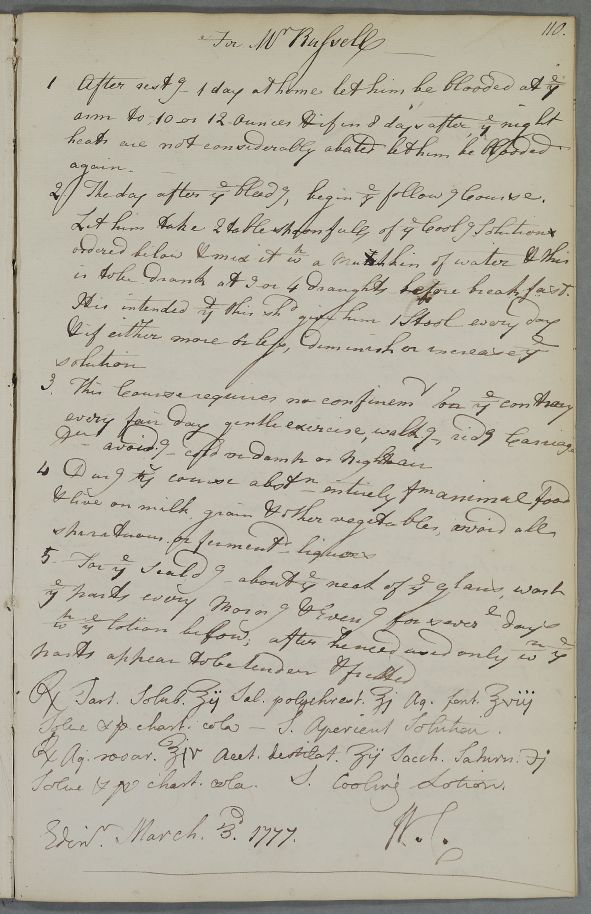 110.
For Mr Russell
1 After restg 1 day at home let him be blooded at ye
arm to 10 or 12 Ounces & if in 8 days after, ye night
heats are not considerably abated let him be blooded
again.
2 The day after ye bleedg, begin ye followg Course.
Let him take 2 table spoonfulls of ye Coolg Solution
ordered below & mix it wth a mutchkin of water & this
is to be drank at 3 or 4 draughts before breakfast.
It is intended yt this shd give him 1 Stool every day
& if either more or less, diminish or increase ye
solution
3. This Course requires no confinemt on ye contrary
every fair day gentle exercise, walkg, ridg Carriage
avoidg cold or damp or Night air
4 Durg ys course abstn entirely fm animal food
& live on milk grain & other vegetables, avoid all
spirituous or fermentd liquors
5. For ye Scaldg about ye neck of ye glans, wash
ye parts every Morng & Eveng for severl days
wth ye lotion below; after used only wn ye
parts appear to be tender & fretted
℞ Tart. Solub. ʒij Sal. polychrest. ʒj Aq. font. ℥viij
Solve & p chart. cola – S. Aperient Solution.
℞ Aq. rosar. ℥iv Acet. destillat. ʒij Sacch. Saturn. ℈j
Solve & p chart. cola. S. Cooling Lotion.
Edinr. March. 3d. 1777. W. C.